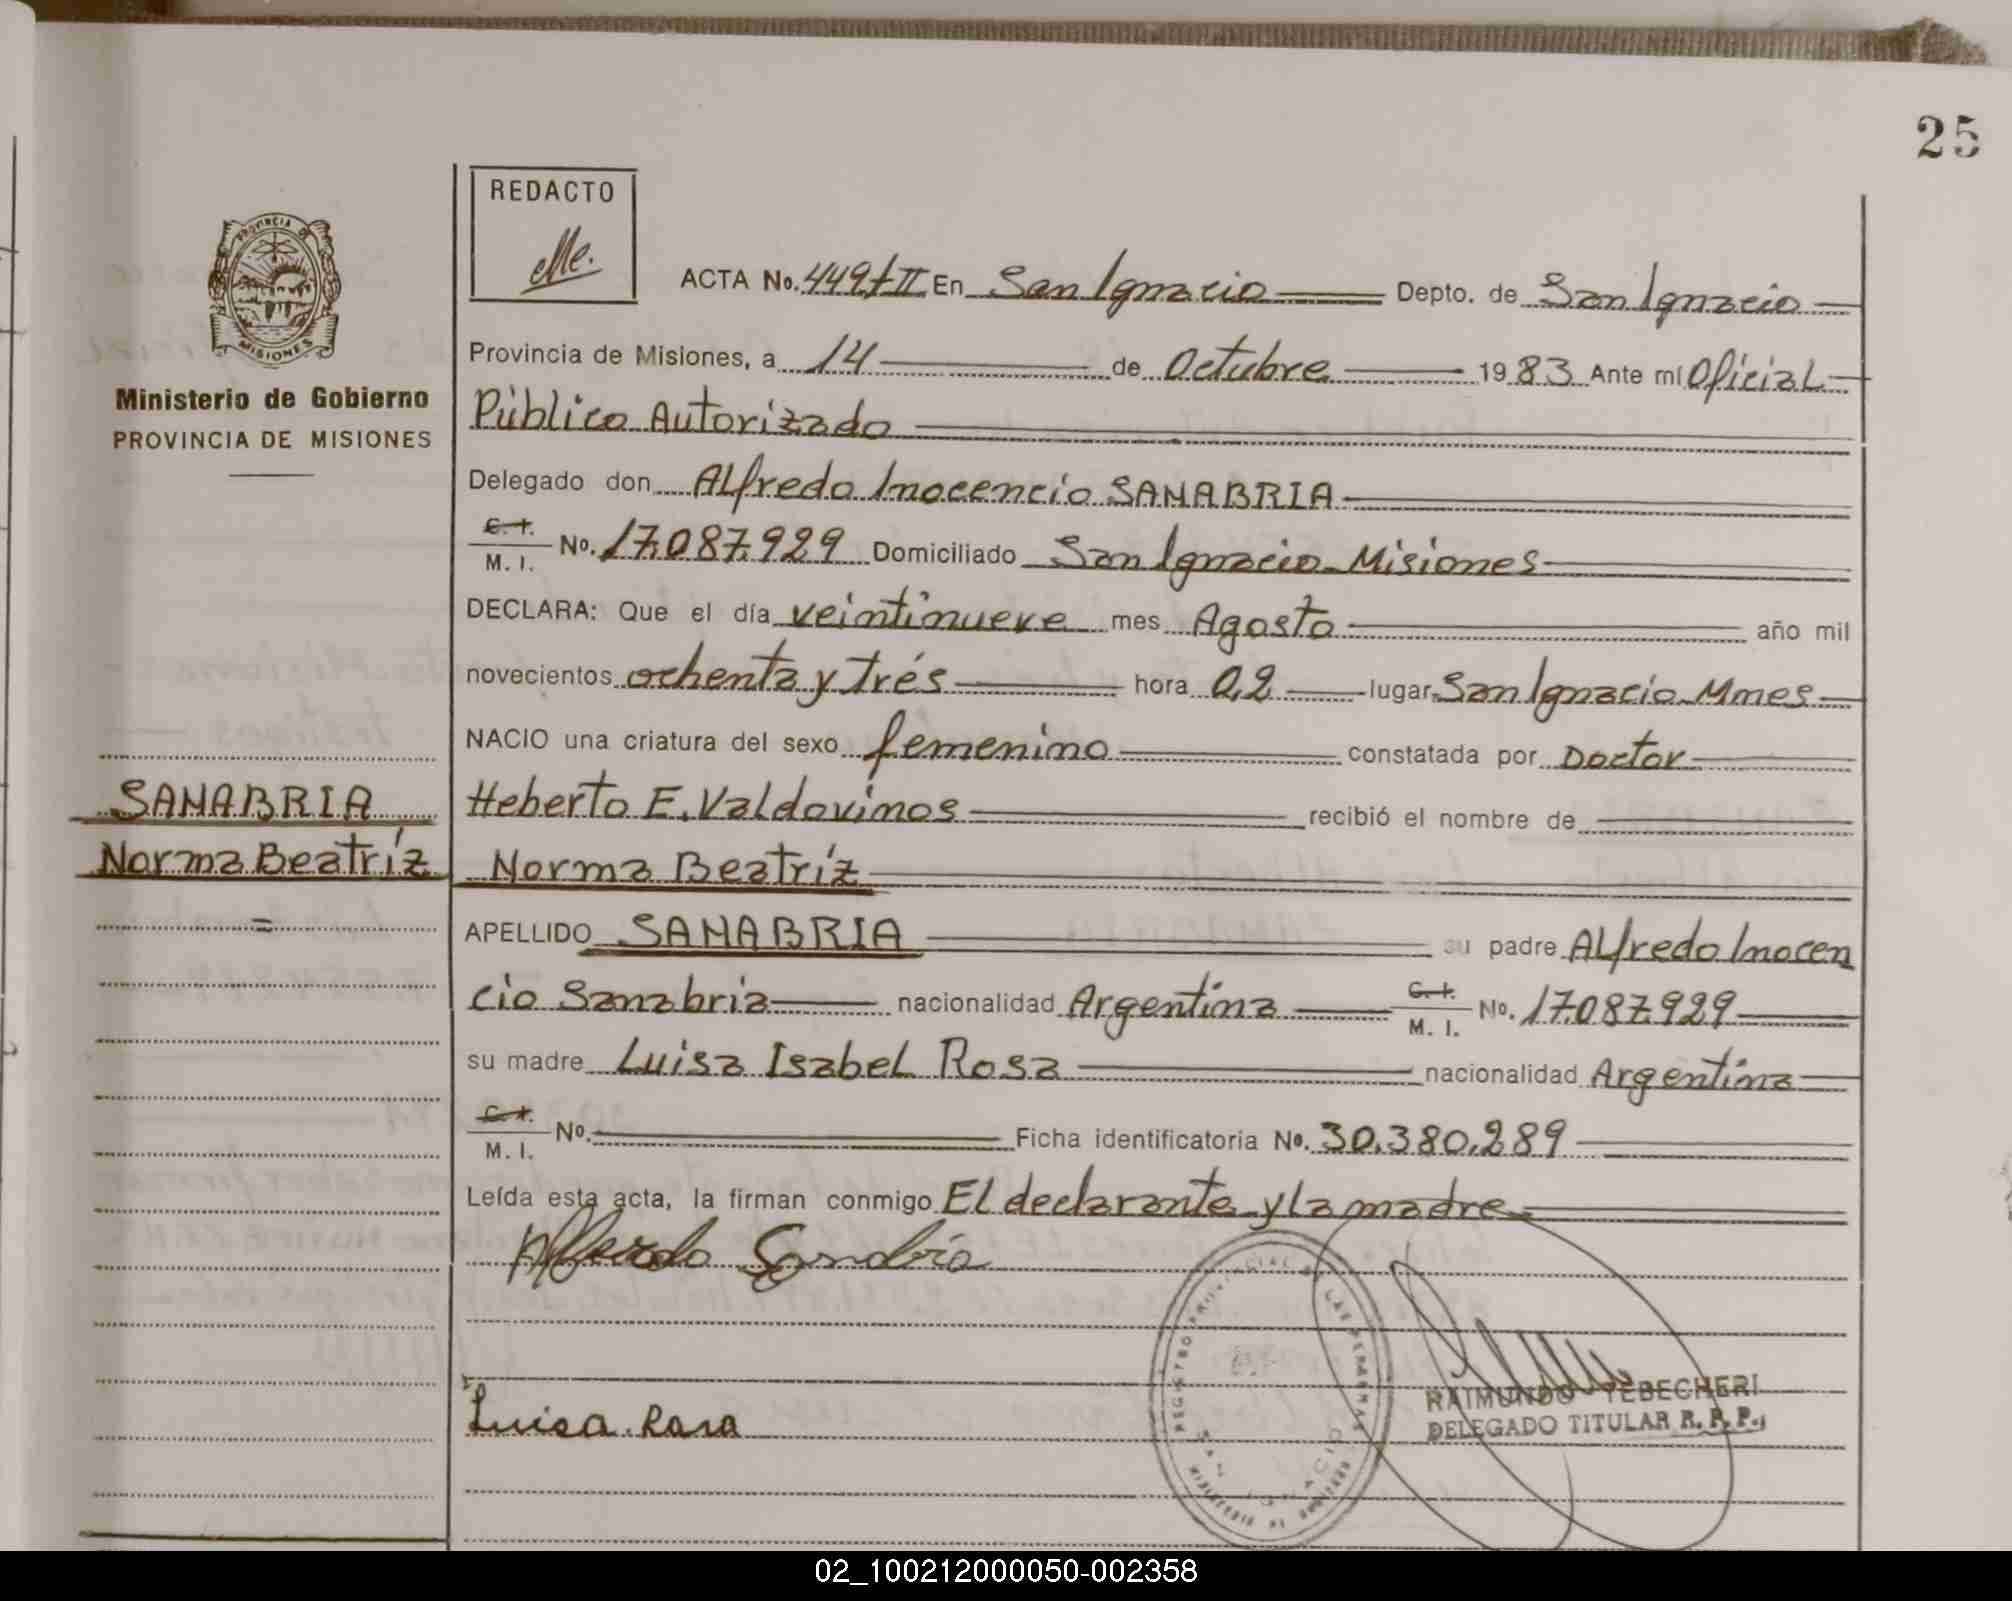 25
REDACTO
PROVINCIA DE
MISIONES
Ministerio de Gobierno
PROVINCIA DE MISIONES
ACTA No. 449 t II En San Ignacio Depto. de San Ignacio
Provincia de Misiones, a 14 de Octubre 1983 Ante mí Oficial
Público Autorizado
Delegado don Alfredo Inocencio SANABRIA
C. I.
M. I. No. 17.087.929 Domiciliado San Ignacio Misiones
DECLARA: Que el día veintinueve mes Agosto año mil
novecientos ochenta y trés hora 02 lugar San Ignacio Mnes
NACIO una criatura del sexo femenino constatada por Doctor
Heberto E. Valdovinos recibió el nombre de
Norma Beatríz
APELLIDO SANABRIA su padre Alfredo Inocen
cio Sanabria nacionalidad Argentina C. I. M. I. No. 17.087.929
su madre Luisa Isabel Rosa nacionalidad Argentina
C. I.
M. I. No. Ficha identificatoria No. 30.380.289
Leída esta acta, la firman conmigo El declarante y la madre
SANABRIA
Norma Beatríz
=
Alfredo Sanabria
Luisa Rosa
REGISTRO PROVINCIAL DE LAS PERSONAS
SAN IGNACIO
MINISTERIO DE GOBIERNO
RAIMUNDO TEBECHERI
DELEGADO TITULAR R. P. P.
02_100212000050-002358